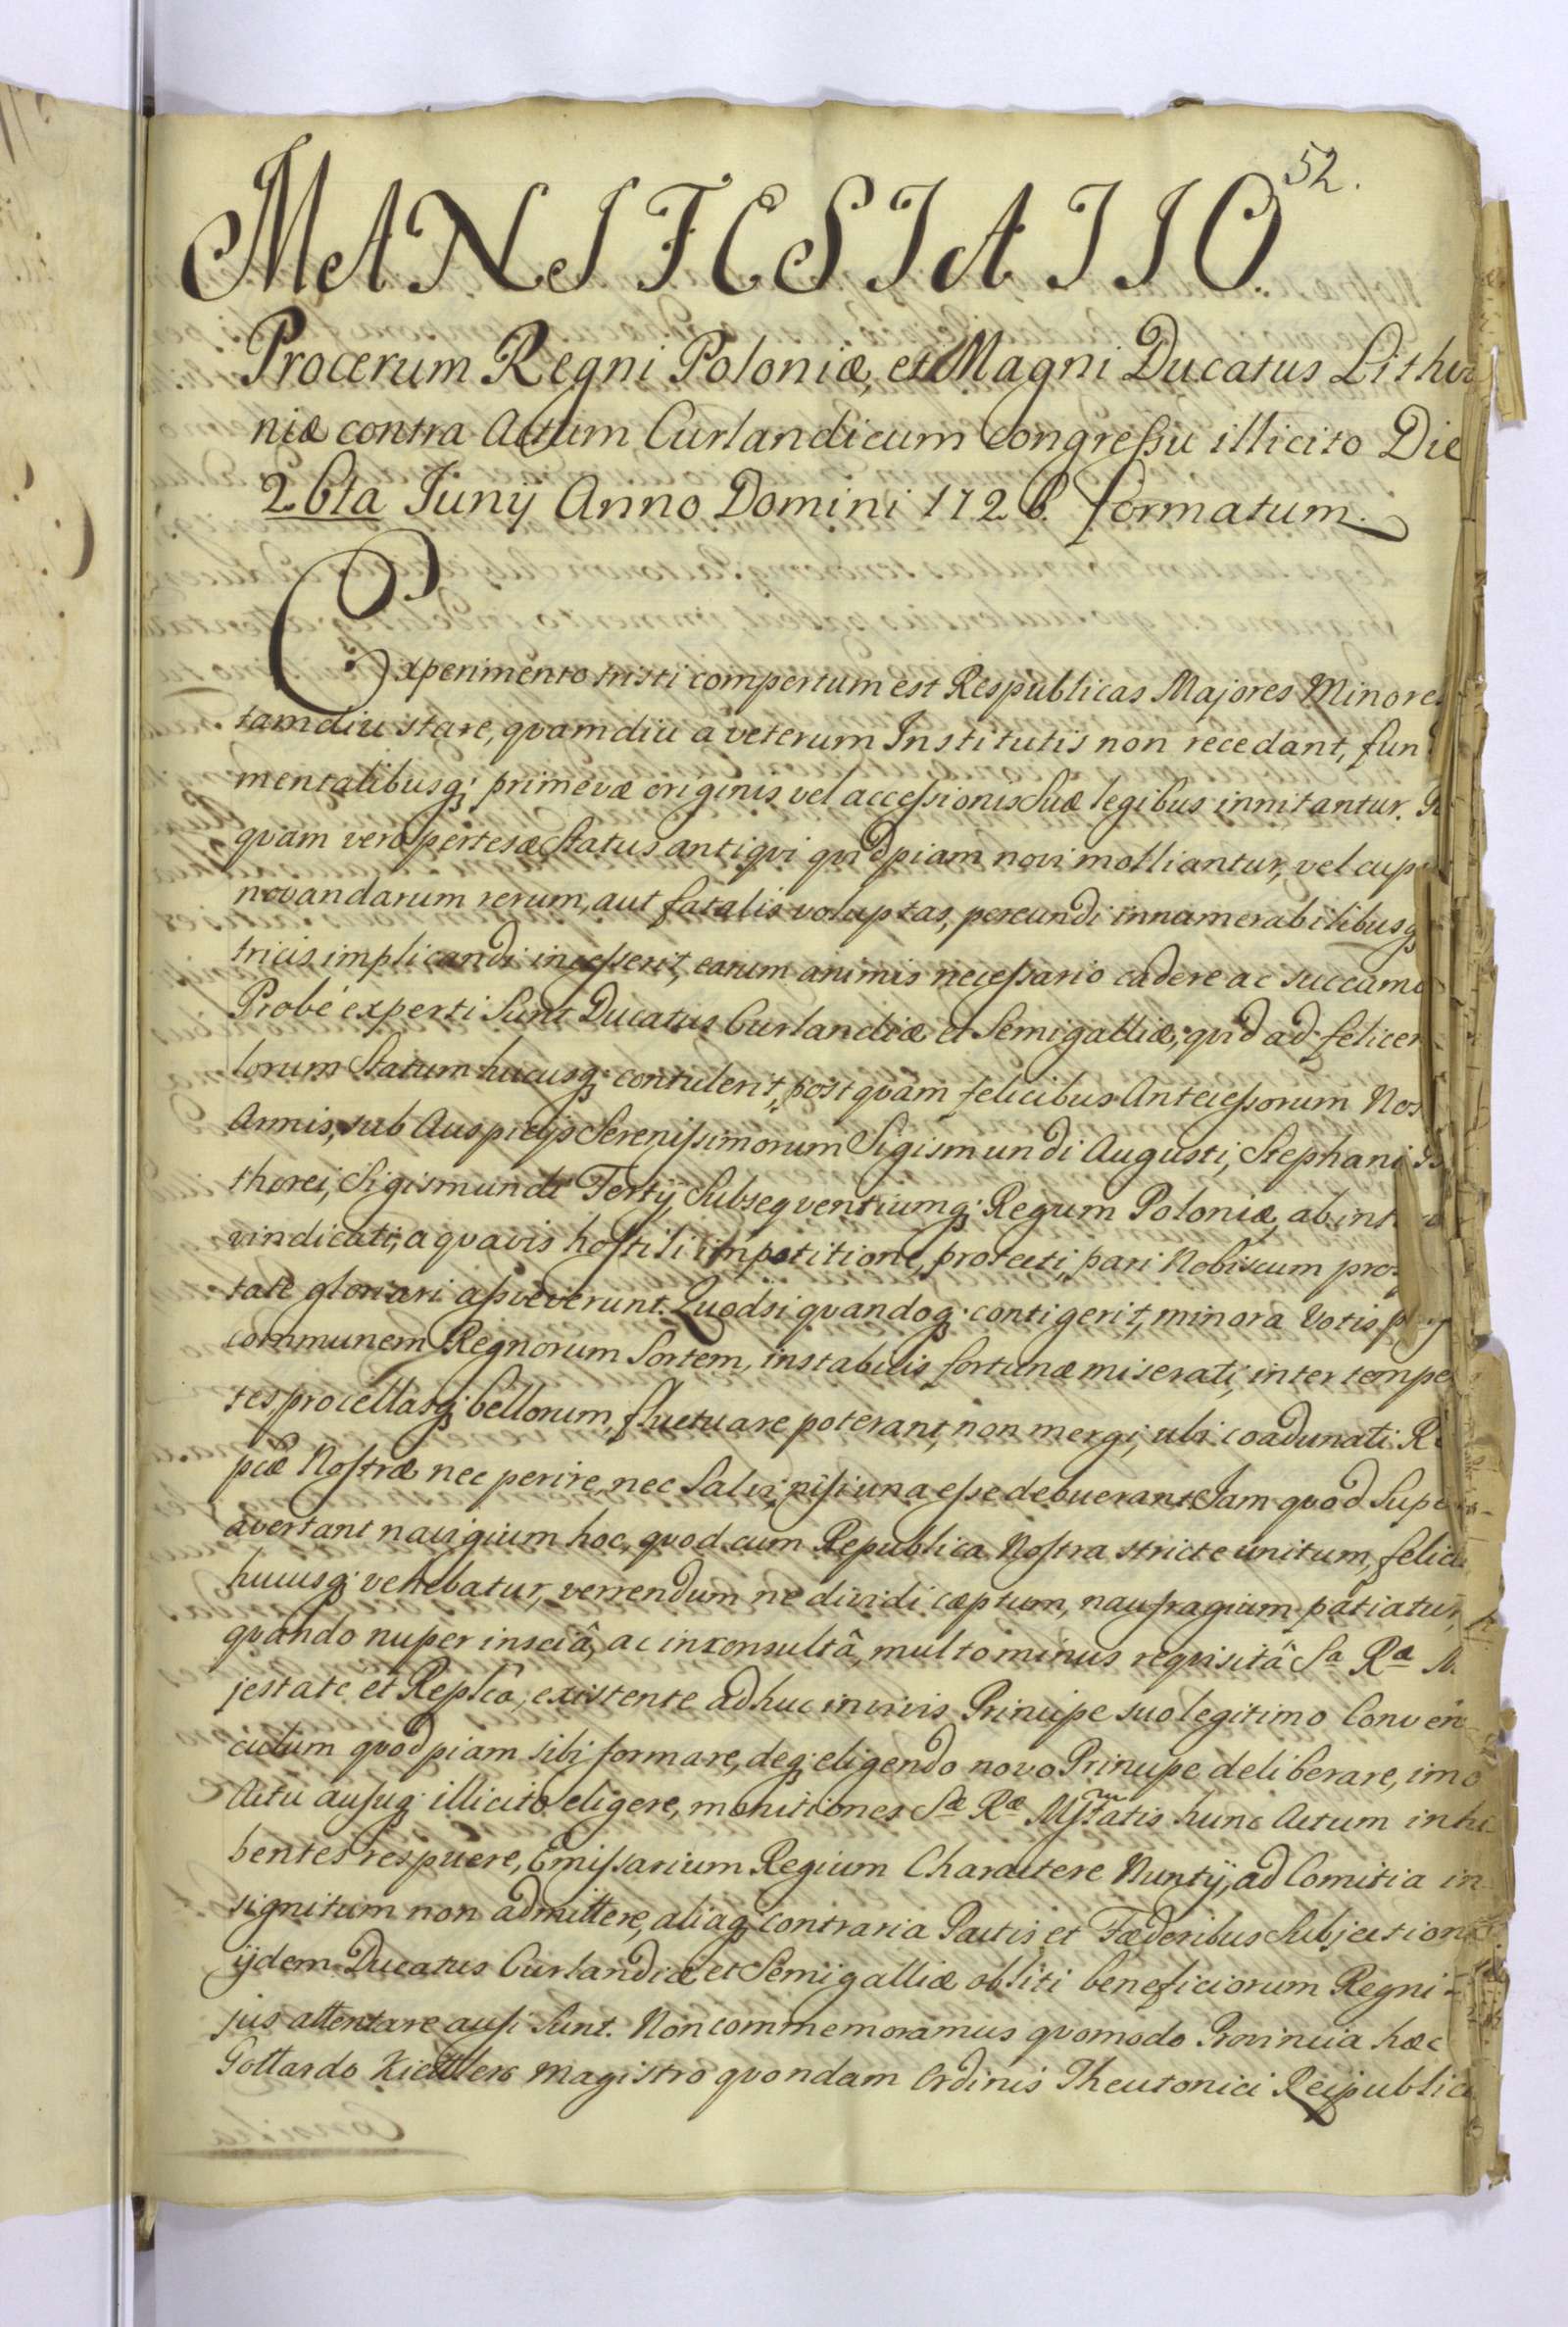 52.
MANIFESTATIO.
Procerum Regni Poloniæ, et Magni Ducatus Lithua
niæ contra Actum Curlandicum congreſsu illicito Die
26ta Junÿ Anno Domini 1726. formatum.
Experimento tristi compertum est Respublicas Majores Minores
tamdiu stare, qvamdiu a veterum Institutis non recedant, fun
mentalibusq; primevæ originis vel acceſsionis Suæ legibus innitantur.
qvam vero pertesæ Status antiqvi qvidpiam novi molliantur, vel cup
novandarum rerum, aut fatalis voluptas, pereundi innumerabilibusq
tricis implicandi inceſserit, earum animis neceſsario cadere ac succumb
Probé experti Sunt Ducatus Curlandiæ et Semigalliæ, qvid ad felicem
lorum Statum hucusq; contulerit, post qvam felicibus Anteceſsorum Nos
Armis, sub Auspicÿs Sereniſsimorum Sigismundi Augusti, Stephani B
thorei, Sigismundi Tertÿ, Subseqventiumq; Regum Poloniæ, ab int
vindicati, a qvavis hoſtili impetitione, protecti, pari Nobiscum pros
tate gloriari aſsveverunt. Quodsi qvandoq; contigerit, minora Votis
communem Regnorum Sortem, instabilis fortunæ miserati, inter tempe
tes procellasq; bellorum, fluctuare poterant, non mergi, ubi coadunati R
pcæ Noſtræ nec perire, nec Salvi, niſi una eſse debuerant. Jam qvod Supe
avertant navigium hoc, qvod cum Republica Noſtra stricte unitum, felici
hucusq; vehebatur, verendum ne dividi cæptum, naufragium patiatur,
qvando nuper insciâ, ac inconsultâ, multo minus reqvisitâ Sa Ra M
jestate et Replcâ, existente adhuc in vivis Principe suo legitimo Conven
culum qvodpiam sibi formare, deq; eligendo novo Principe deliberare, imo
Actu auſuq; illicito eligere, monitiones Sæ Ræ Mſtatis hunc Actum inhi
bentes respuere, Emiſsarium Regium Charactere Nuntÿ, ad Comitia in
signitum non admittere, aliaq; contraria Pactis et Fæderibus Subjection
ÿdem Ducatus Curlandiæ et Semigalliæ obliti beneficiorum Regni
jus attentare auſi Sunt. Non commemoramus qvomodo Provincia hæc
Gottardo Kiettlero Magistro qvondam Ordinis Theutonici Reipublicæ
Consilia